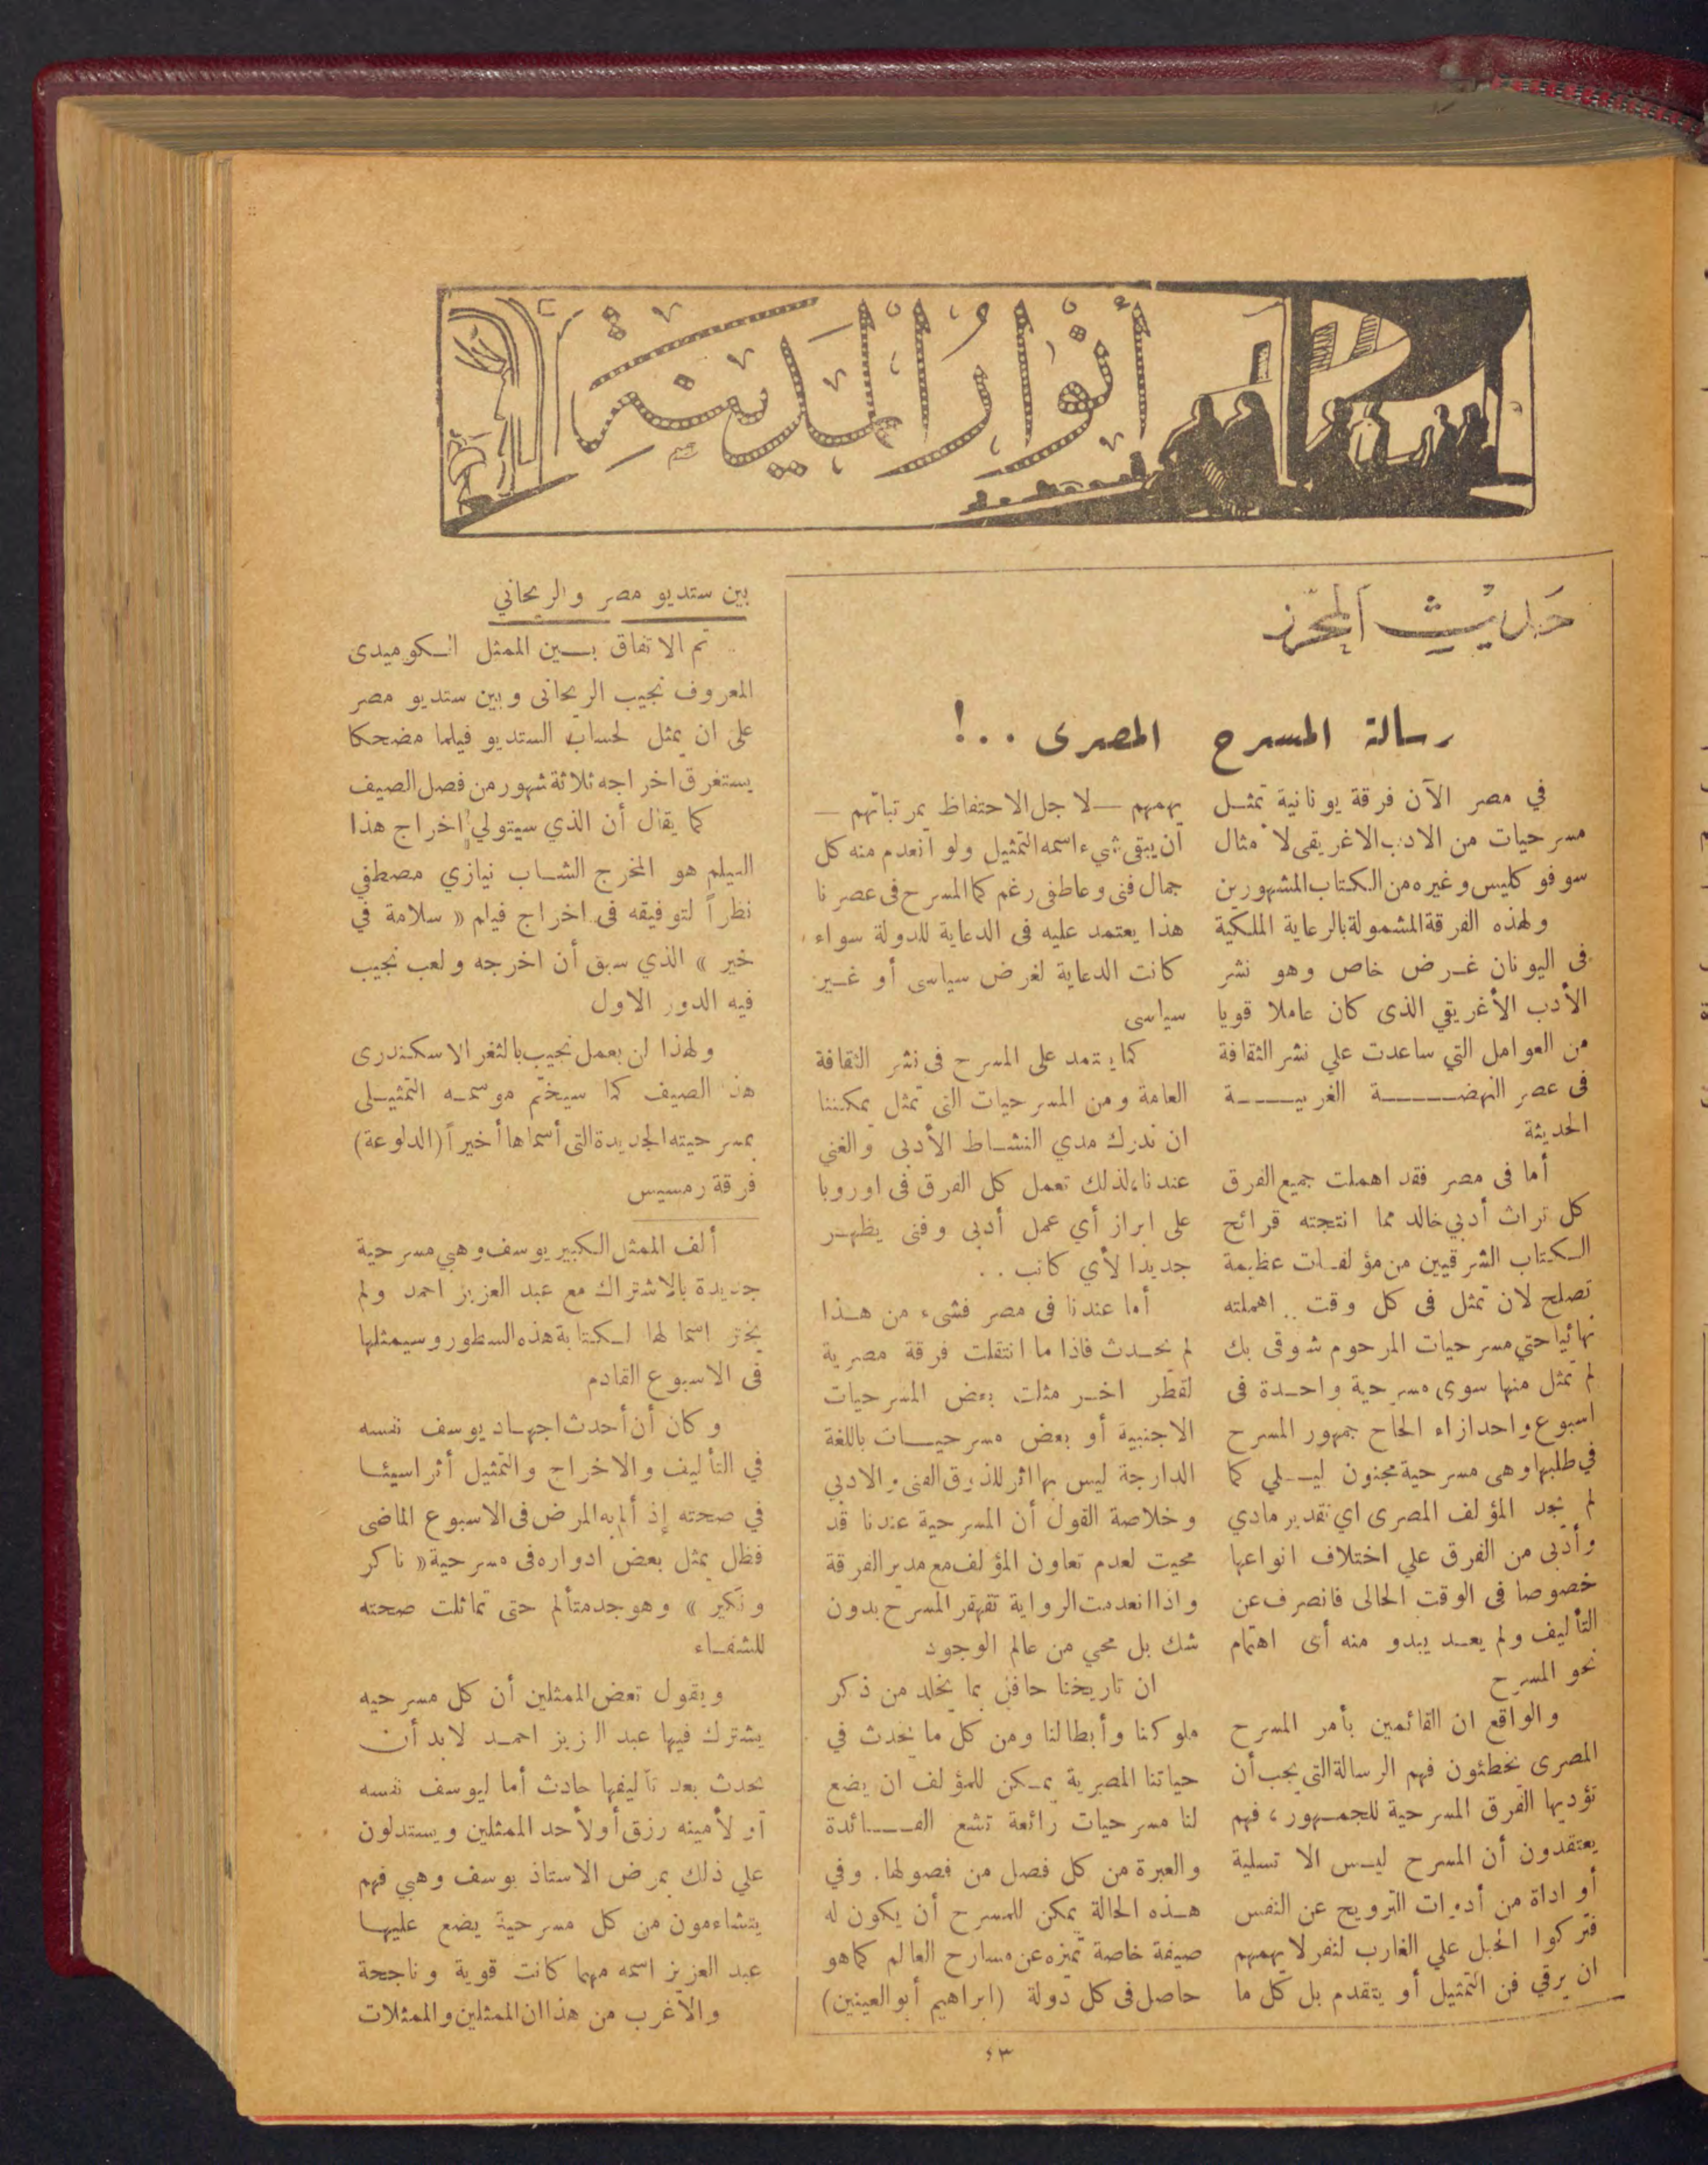 أنوار المدينة
حديث المحرر
رسالة المسرح المصرى ..!
في مصر الآن فرقة يونانية تمثل
مسرحيات من الادب الاغريقى لا مثال
سوفوكليس وغيره من الكتاب المشهورين
ولهذه الفرقة المشمولة بالرعاية الملكية
فى اليونان غرض خاص وهو نشر
الأدب الأغريقي الذى كان عاملا قويا
من العوامل التي ساعدت علي نشر الثقافة
فى عصر النهضة الغربية
الحديثة
أما فى مصر فقد اهملت جميع الفرق
كل تراث أدبي خالد مما انتجته قرائح
الكتاب الشرقيين من مؤلفات عظيمة
تصلح لان تمثل فى كل وقت .. اهملته
نهائيا حتي مسرحيات المرحوم شوقى بك
لم تمثل منها سوى مسرحية واحدة فى
اسبوع واحد ازاء الحاح جمهور المسرح
في طلبها وهى مسرحية مجنون ليلي كما
لم نجد المؤلف المصرى اي تقدير مادي
وأدبى من الفرق علي اختلاف انواعها
خصوصا فى الوقت الحالى فانصرف عن
التأليف ولم يعد يبدو منه أى اهتمام
نحو المسرح
والواقع ان القائمين بأمر المسرح
المصرى يخطئون فهم الرسالة التى يجب أن
تؤديها الفرق المسرحية للجمهور ، فهم
يعتقدون أن المسرح ليس الا تسلية
أو اداة من أدوات الترويح عن النفس
فتركوا الحبل علي الغارب لنفر لا يهمهم
ان يرقي فن التمثيل أو يتقدم بل كل ما
يهمهم — لاجل الاحتفاظ بمرتباتهم —
أن يبقى شيء اسمه التمثيل ولو انعدم منه كل
جمال فنى وعاطفى رغم كما المسرح فى عصرنا
هذا يعتمد عليه فى الدعاية للدولة سواء
كانت الدعاية لغرض سياسى أو غير
سياسى
كما يعتمد على المسرح فى نشر الثقافة
العامة ومن المسرحيات التى تمثل يمكننا
ان ندرك مدي النشاط الأدبى والفني
عندنا ، لذلك تعمل كل الفرق فى اوروبا
على ابراز أي عمل أدبى وفنى يظهر
جديدا لأي كاتب ..
أما عندنا فى مصر فشىء من هذا
لم يحدث فاذا ما انتقلت فرقة مصرية
لقطر اخر مثلت بعض المسرحيات
الاجنبية أو بعض مسرحيات باللغة
الدارجة ليس بها اثر للذوق الفنى والادبي
وخلاصة القول أن المسرحية عندنا قد
محيت لعدم تعاون المؤلف مع مدير الفرقة
واذا انعدمت الرواية تقهقر المسرح بدون
شك بل محي من عالم الوجود
ان تاريخنا حافل بما يخلد من ذكر
ملوكنا وأبطالنا ومن كل ما يحدث في
حياتنا المصرية يمكن للمؤلف ان يضع
لنا مسرحيات رائعة تشع الفائدة
والعبرة من كل فصل من فصولها. وفي
هذه الحالة يمكن للمسرح أن يكون له
صيفة خاصة تميزه عن مسارح العالم كما هو
حاصل فى كل دولة (ابراهيم أبو العينين)
بين ستديو مصر والريحاني
تم الاتفاق بين الممثل الكوميدى
المعروف نجيب الريحانى وبين ستديو مصر
على ان يمثل لحساب الستديو فيلما مضحكا
يستغرق اخراجه ثلاثة شهور من فصل الصيف
كما يقال أن الذي سيتولي اخراج هذا
الفيلم هو المخرج الشاب نيازي مصطفي
نظراً لتوفيقه فى اخراج فيلم « سلامة في
خير » الذي سبق أن اخرجه ولعب نجيب
فيه الدور الاول
ولهذا لن يعمل نجيب بالثغر الاسكندرى
هذا الصيف كما سيختم موسمه التمثيلى
بمسرحيته الجديدة التى أسماها أخيراً (الدلوعة)
فرقة رمسيس
ألف الممثل الكبير يوسف وهبي مسرحية
جديدة بالاشتراك مع عبد العزيز احمد ولم
يختر اسما لها لكتابة هذه السطور وسيمثلها
فى الاسبوع القادم
وكان أن أحدث اجهاد يوسف نفسه
في التأليف والاخراج والتمثيل أثرا سيئا
في صحته إذ ألم به المرض فى الاسبوع الماضى
فظل يمثل بعض ادواره فى مسرحية « ناكر
ونكير » وهو جد متألم حتى تماثلت صحته
للشفاء
ويقول بعض الممثلين أن كل مسرحيه
يشترك فيها عبد العزيز احمد لابد أن
يحدث بعد تأليفها حادث أما ليوسف نفسه
أو لأمينه رزق أو لأحد الممثلين ويستدلون
علي ذلك بمرض الاستاذ يوسف وهبي فهم
يتشاءمون من كل مسرحية يضع عليها
عبد العزيز اسمه مهما كانت قوية وناجحة
والأغرب من هذا ان الممثلين والممثلات
٤٣